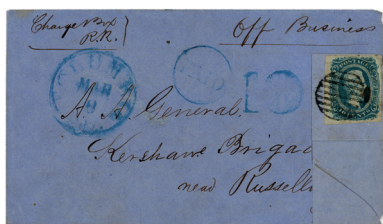 Charge Box
R.R.
Off Business
PAID
10
A. A. General.
Kershaw Brigad
near Russell